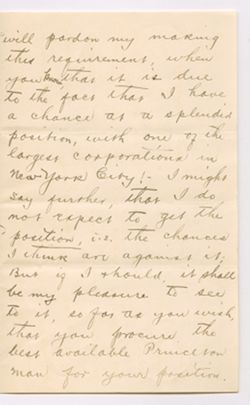 will pardon my making
this requirement, when
you know that it is due
to the fact that I have
a chance at a splendid
position, with one of the
largest corporations in
New York City! - I might
say further, that I do
not expect to get the
position, i.e. the chances
I think are against it;
But if I should, it shall
be my pleasure to see
to it, so far as you wish,
that you procure the
best available Princeton
man for your position.